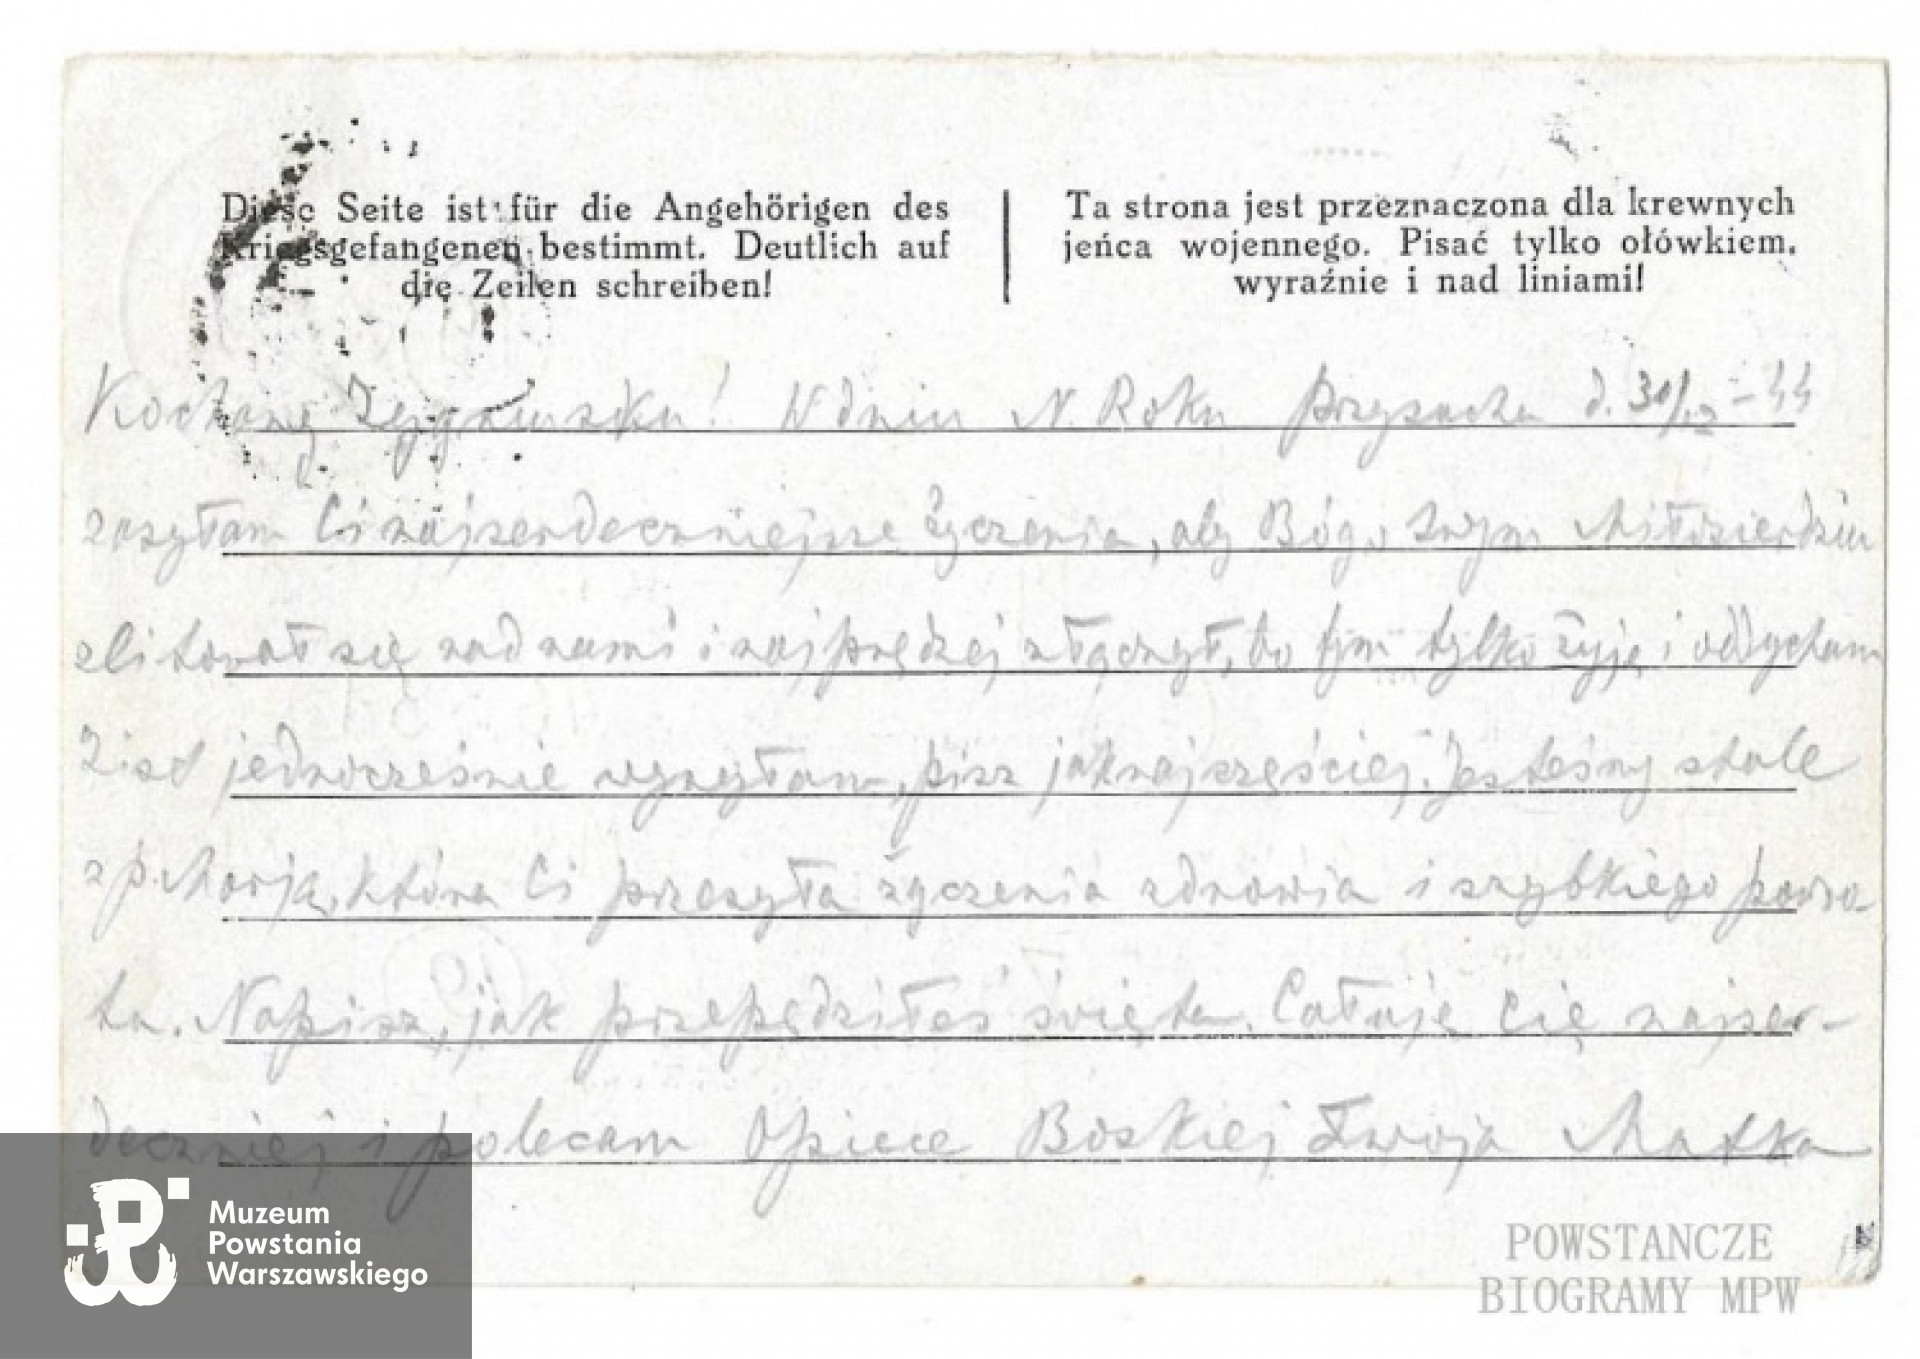 Diese Seite ist für die Angehörigen des
Kriegsgefangenen bestimmt. Deutlich auf
die Zeilen schreiben!
Ta strona jest przeznaczona dla krewnych
jeńca wojennego. Pisać tylko ołówkiem,
wyraźnie i nad liniami!
Kochany Zygmusiku! W dniu N. Roku Przysucha d. 30/12 - 44
zasyłam Ci najserdeczniejsze życzenia, aby Bóg w swym Miłosierdziu
zlitował się nad nami i najprędzej złączył, bo tym tylko żyję i oddycham
List jednocześnie wysyłam, pisz jaknajczęściej. Jesteśmy stale
z p. Marją, która Ci przesyła życzenia zdrowia i szybkiego powro-
tu. Napisz, jak przepędziłeś święta. Całuję Cię najser-
deczniej i polecam Opiece Boskiej Twoja Matka
Muzeum
Powstania
Warszawskiego
POWSTAŃCZE
BIOGRAMY MPW